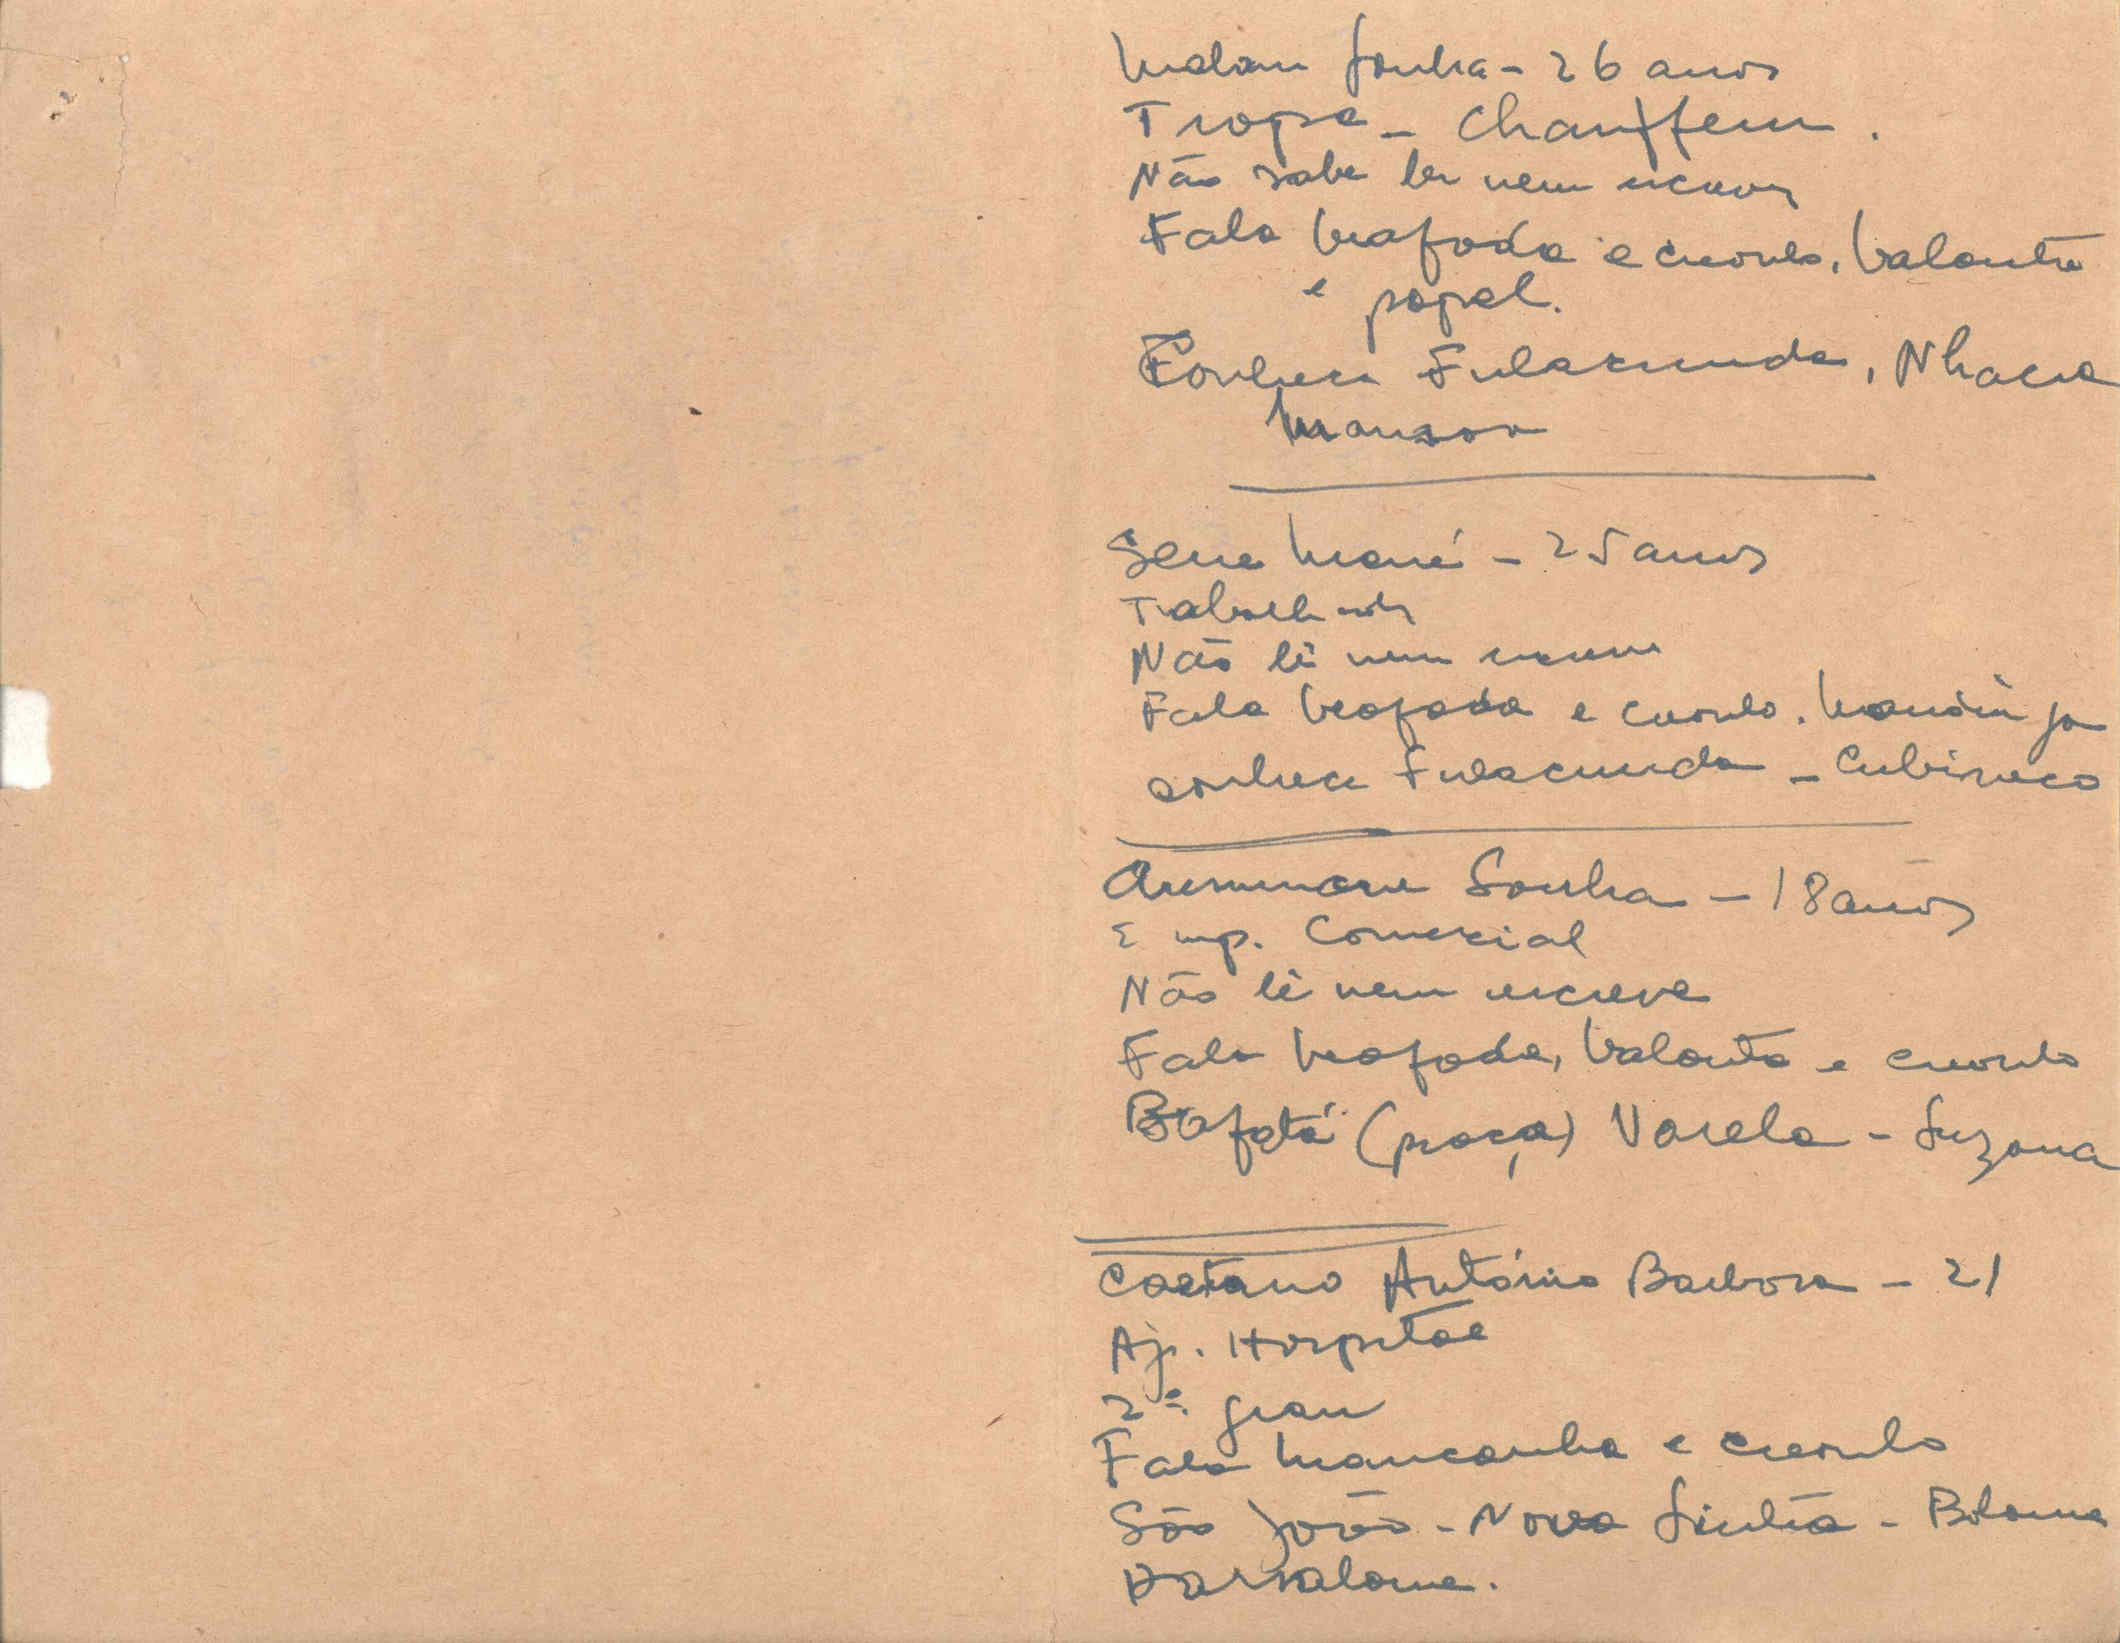 Malam Sonha - 26 anos
Tropa - Chauffeur.
Não sabe ler nem escrever
Fala beafada e creoulo, balanta
e papel.
Conhece Fulacunda, Nhacra
Mansoa
Sene Mané - 25 anos
Trabalhador
Não lê nem escreve
Fala beafada e creoulo. Mandinga
conhece Fulacunda - Cubisseco
Sonha - 18 anos
Emp. Comercial
Não lê nem escreve
Fala beafada, balanta e creoulo
Bafatá (praça) Varela - Suzana
Caetano António Barbosa - 21
Aj. Hospital
2º. grau
Fala mancanha e creoulo
São João - Nova Sintra - Bolama